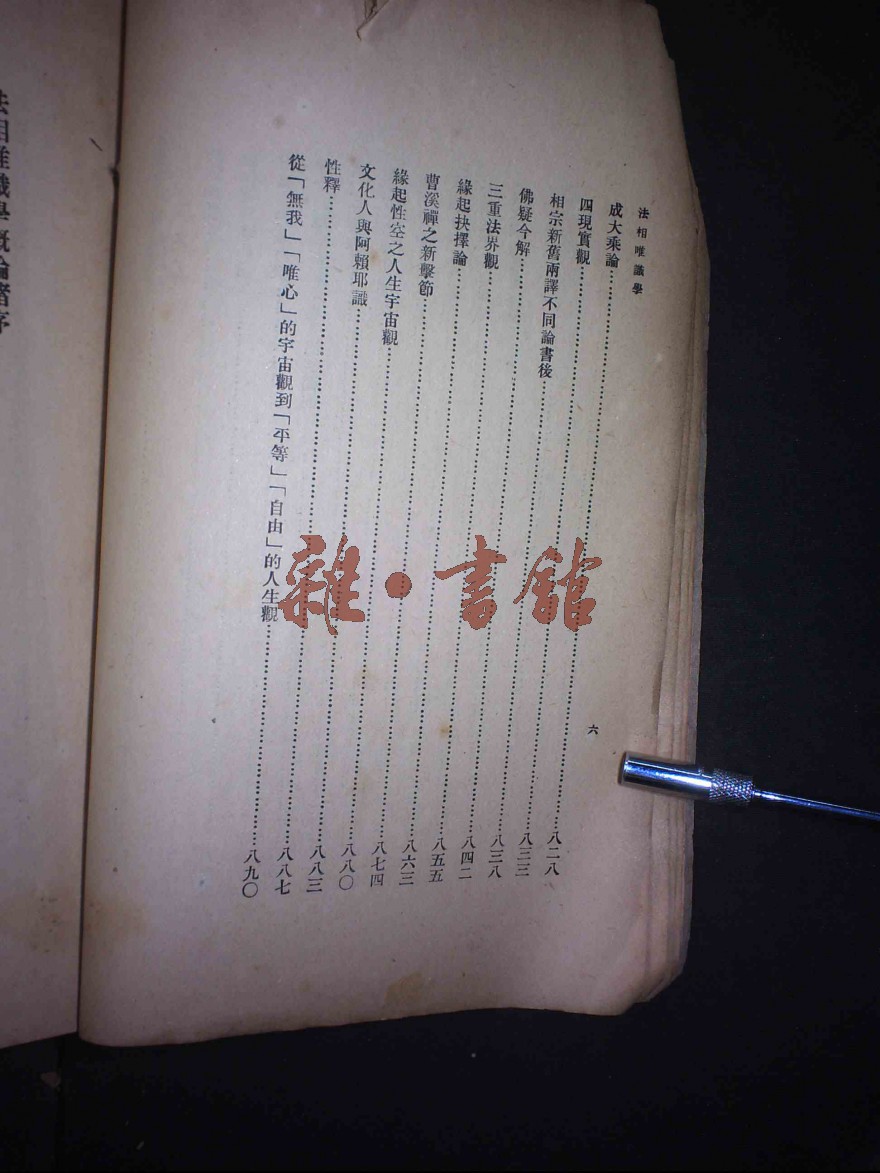 法相唯識學
成大乘論……八二八
四現實觀……八三三
相宗新舊兩譯不同論書後……八三八
佛疑今解……八四二
三重法界觀……八五五
緣起抉擇論……八六三
曹溪禪之新擊節……八七四
緣起性空之人生宇宙觀……八八〇
文化人與阿賴耶識……八八三
性釋……八八七
從「無我」「唯心」的宇宙觀到「平等」「自由」的人生觀……八九〇
六
法相唯識學概論序
雜·書館